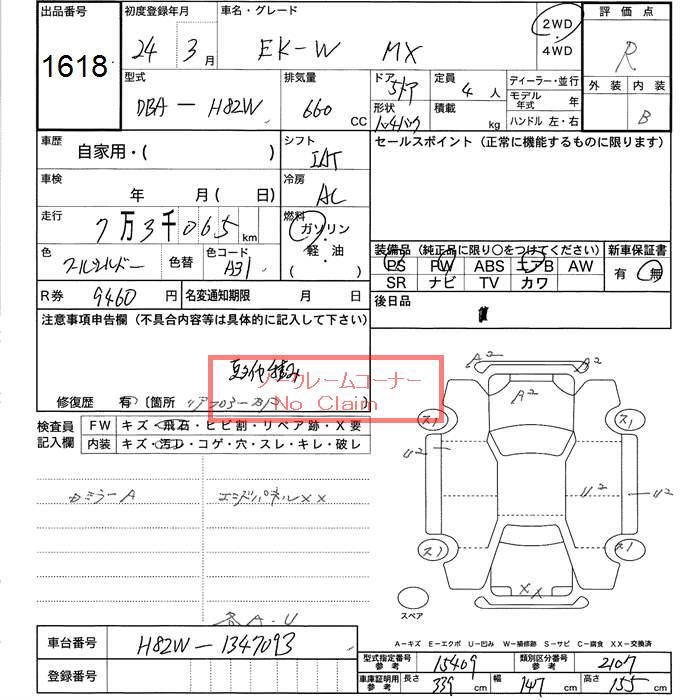 出品番号 初度登録年月 車名・グレード 評価点
1618 24年 3月 EK-W MX 2WD・4WD R
型式 排気量 ドア 定員 ディーラー・並行 外装 内装
DBA-H82W 660 CC 5ドア 4人 モデル年式 年 B
形状 積載 kg ハンドル 左・右
車歴 自家用・( ) シフト IAT セールスポイント (正常に機能するものに限ります)
車検 年 月( 日) 冷房 AC
走行 7万3千065km 燃料 ガソリン・軽・油 ( )
装備品 (純正品に限り○をつけてください) 新車保証書
色 色替 色コード A31 PS PW ABS エアB AW 有 無
SR ナビ TV カワ
R券 9460円 名変通知期限 月 日 後日品
注意事項申告欄 (不具合内容等は具体的に記入して下さい)
ノークレームコーナー
No Claim
修復歴 有 〔箇所
検査員記入欄 FW キズ・飛石・ヒビ割・リペア跡・X要
内装 キズ・汚レ・コゲ・穴・スレ・キレ・破レ
カミラーA エンドパネルXX
各A.U
A2 A2
A2
ス1 ス1
U2 U2 U2
ス1 ス1
XX
スペア
A-キズ E-エクボ U-凹み W-補修跡 S-サビ C-腐食 XX-交換済
車台番号 H82W-1347093
型式指定番号参考 15409 類別区分番号参考 2107
登録番号
車庫証明用参考 長さ 339cm 幅 147cm 高さ 155cm